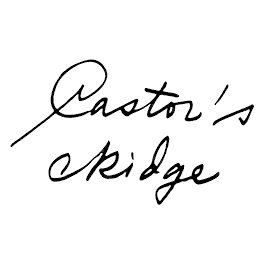 Castor's
Ridge